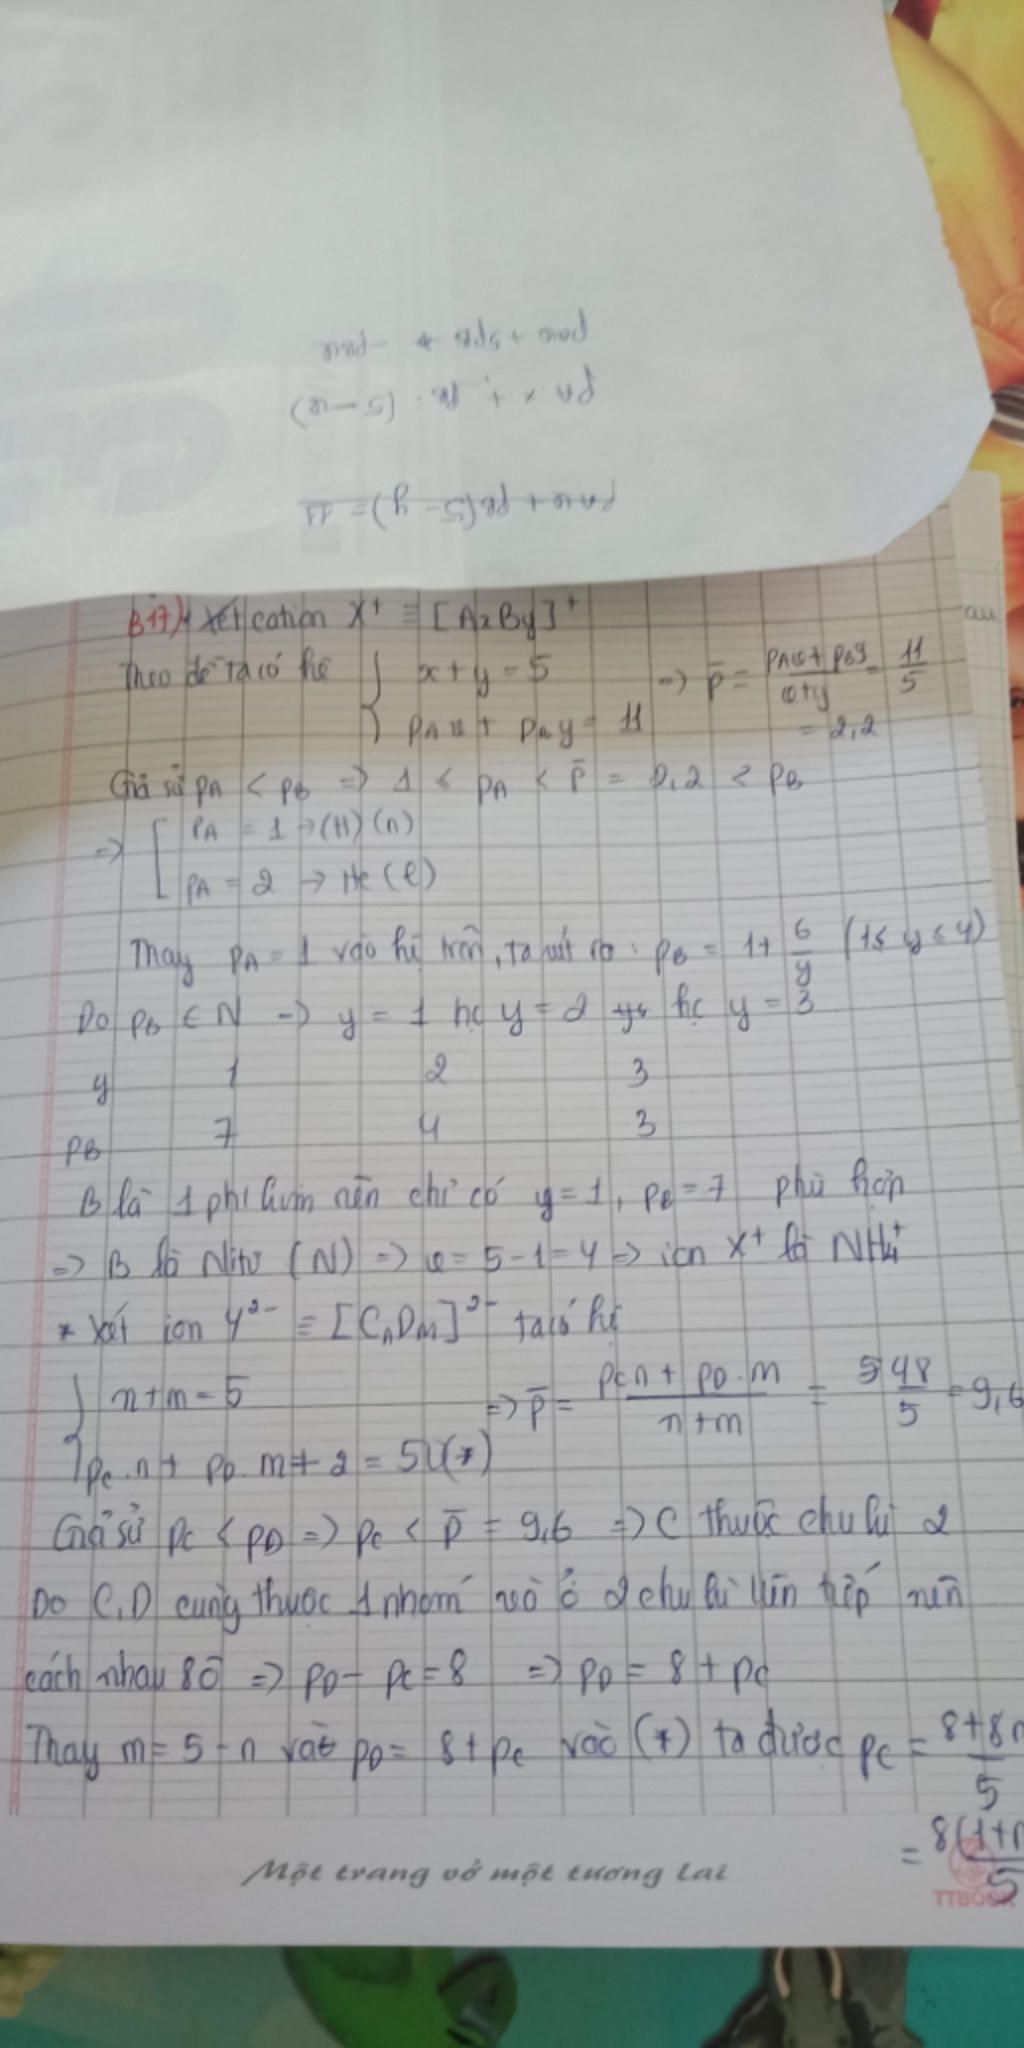 pAx + 5pB * -pBx
pA x + pB. (5-x)
pAx + pB(5-y) = 11
B17) * Xét cation X⁺ ≡ [AxBy]⁺
Theo đề ta có hệ { x + y = 5 => p̄ = (pAx + pBy)/(x+y) = 11/5
pAx + pBy = 11 = 2,2
Giả sử pA < pB => 1 < pA < p̄ = 2,2 < pB
=> [ pA = 1 → (H) (n)
pA = 2 → He (l)
Thay pA = 1 vào hệ trên, ta rút ra: pB = 1 + 6/y (1 ≤ y ≤ 4)
Do pB ∈ N => y = 1 hc y = 2 hc y = 3
y 1 2 3
pB 7 4 3
B là 1 phi kim nên chỉ có y = 1, pB = 7 phù hợp
=> B là Nitơ (N) => x = 5 - 1 = 4 => ion X⁺ là NH₄⁺
* Xét ion Y²⁻ ≡ [CnDm]²⁻ ta có hệ
{ n + m = 5 => p̄ = (pC n + pD . m)/(n + m) = 48/5 = 9,6
pC . n + pD . m + 2 = 50 (*)
Giả sử pC < pD => pC < p̄ = 9,6 => C thuộc chu kì 2
Do C, D cùng thuộc 1 nhóm và ở 2 chu kì liên tiếp nên
cách nhau 8ô => pD - pC = 8 => pD = 8 + pC
Thay m = 5 - n và pD = 8 + pC vào (*) ta được pC = (8+8n)/5
= 8(1+n)/5
Một trang vở một tương lai
TTBOOK